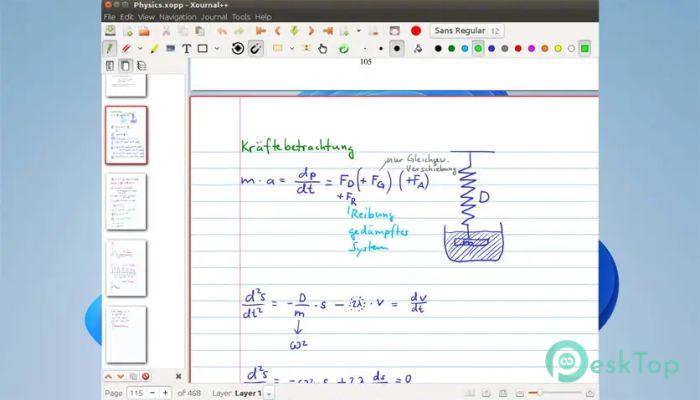 Physics.xopp - Xournal++
File Edit View Navigation Journal Tools Help
Sans Regular 12
105
Kräftebetrachtung
nur Gleichgew.
Verschiebung
m · a = dp/dt = F_D (+ F_G) (+F_A)
+ F_R
D
Reibung
gedämpftes
System
d²s/dt² = - D/m · s - 2λ · v = dv/dt
ω²
d²s/ -ω² s + 2λ ds/ = 0
Page 115 of 468 Layer Layer 1
DeskTop